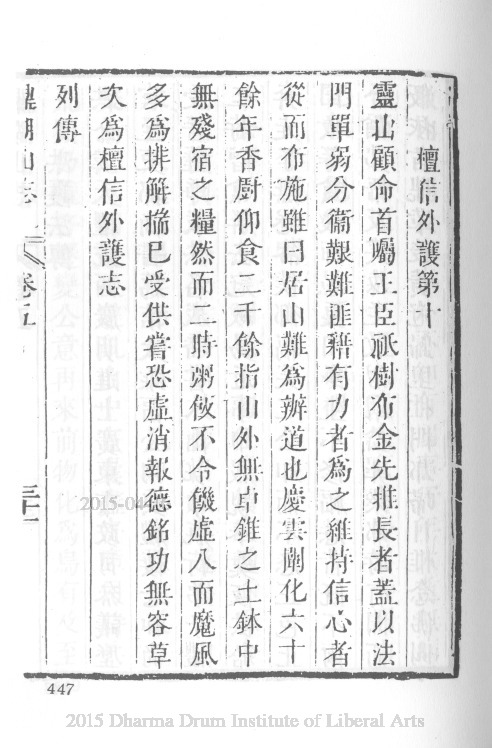 檀信外護第十
靈山顧命首囑王臣祇樹布金先推長者蓋以法
門單弱分衞艱難匪藉有力者為之維持信心者
從而布施雖曰居山難為辦道也慶雲闡化六十
餘年香厨仰食二千餘指山外無卓錐之土鉢中
無殘宿之糧然而二時粥飯不令饑虛八面魔風
多為排解揣已受供嘗恐虛消報德銘功無容草
次為檀信外護志
列傳
鼎湖山志
卷五
三十一
2015-04-
447
2015 Dharma Drum Institute of Liberal Arts